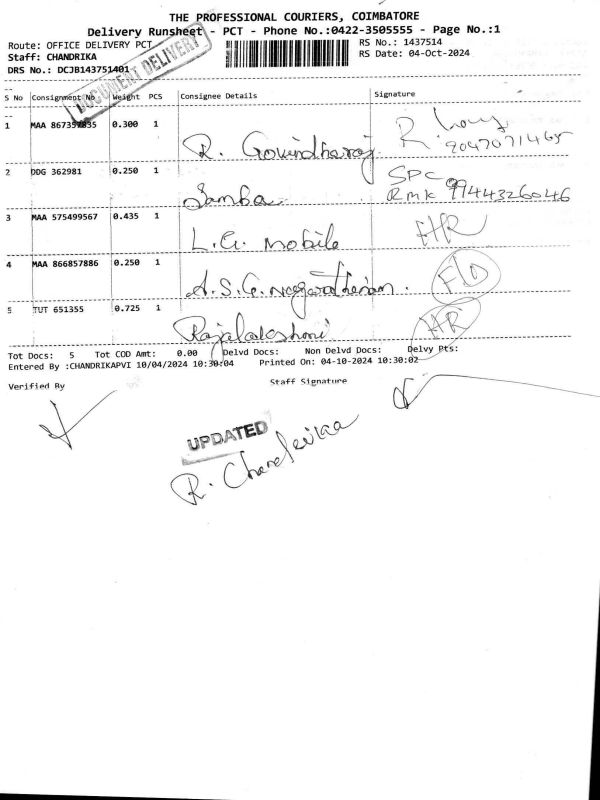 THE PROFESSIONAL COURIERS, COIMBATORE
Delivery Runsheet - PCT - Phone No.:0422-3505555 - Page No.:1
Route: OFFICE DELIVERY PCT
RS No.: 1437514
Staff: CHANDRIKA
RS Date: 04-Oct-2024
DRS No.: DCJB143751401
DOCUMENT DELIVERY
S No Consignment No Weight PCS Consignee Details Signature
1 MAA 867357835 0.300 1 R. Govindharaj R.
2 DDG 362981 0.250 1 Samba SPC
RMK 9944326046
3 MAA 575499567 0.435 1 L.G. Mobile HR
4 MAA 866857886 0.250 1 A.S.G. FLD
5 TUT 651355 0.725 1 Rajalakshmi HR
Tot Docs: 5 Tot COD Amt: 0.00 Delvd Docs: Non Delvd Docs: Delvy Pts:
Entered By :CHANDRIKAPVI 10/04/2024 10:30:04 Printed On: 04-10-2024 10:30:02
Verified By Staff Signature
UPDATED
R. Chandrikaa